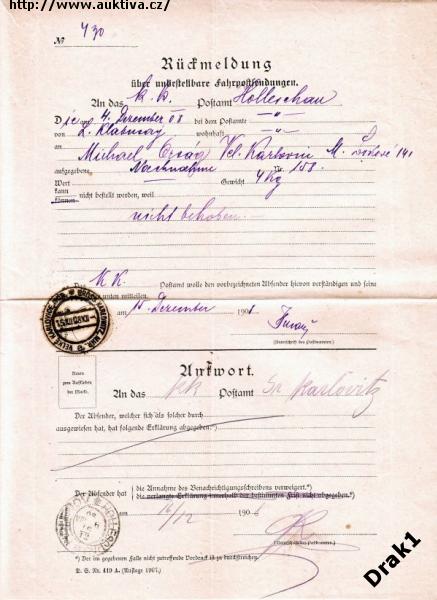 http://www.auktiva.cz/
№ 430
Rückmeldung
über unbestellbare Fahrpostsendungen.
An das k. k. Postamt Holleschau
Die am 4. Dezember 08 bei dem Postamte — " —
von wohnhaft — " —
an Michael Vel. Karlovic M.
ausgegebene Nachnahme Nr. 158.
Wert Gewicht 4 Kg
kann
können nicht bestellt werden, weil
nicht behoben.
Das K. K. Postamt wolle den vorbezeichneten Absender hievon verständigen und seine
mitteilen.
am 15. Dezember 1908
(Unterschrift des Postbeamten.)
Antwort.
Raum
zum Aufkleben
der Marke.
An das k k Postamt Gr Karlovitz
Der Absender, welcher sich als solcher durch
ausgewiesen hat, hat folgende Erklärung abgegeben:*)
Der Absender hat die Annahme des Benachrichtigungsschreibens verweigert.*)
die verlangte Erklärung innerhalb der bestimmten Frist nicht abgegeben.*)
am 16/12 190
(Unterschrift des Postbeamten.)
*) Der im gegebenen Falle nicht zutreffende Vordruck ist zu durchstreichen.
D. S. Nr. 419 A. (Auflage 1907.)
Drak1